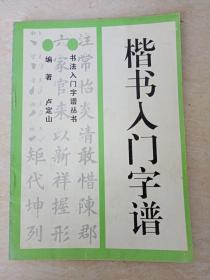 楷书入门字谱
书法入门字谱丛书
编著 卢定山
常怡炎清敢惜陳郡
六家官来以新祥握形
矩代坤列